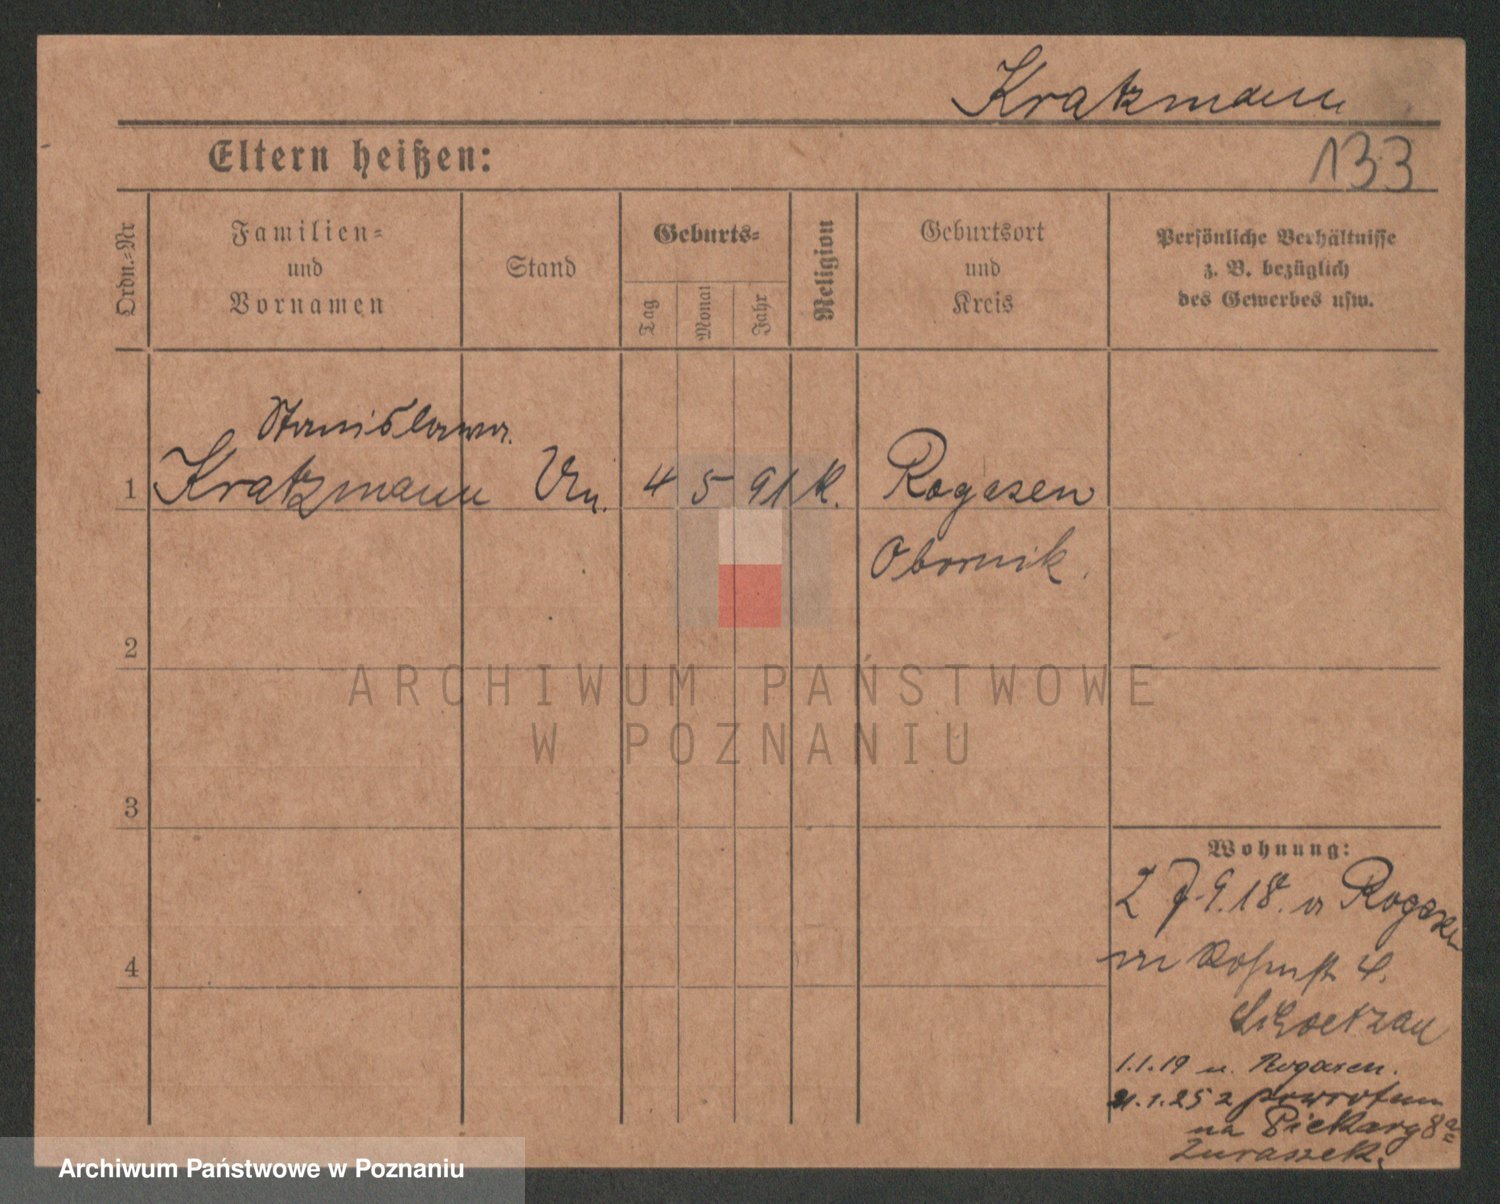 Kratzmann
133
Eltern heißen:
Ordn.-Nr
Familien-
und
Vornamen
Stand
Geburts-
Tag
Monat
Jahr
Religion
Geburtsort
und
Kreis
Persönliche Verhältnisse
z. B. bezüglich
des Gewerbes usw.
Stanislawa
1 Kratzmann 4 5 91 K. Rogasen
Obornik.
2
3
4
Wohnung:
7.9.18. Rogasen
4.
1.1.19 Rogasen.
1.25 z powrotem
na Piekary 8a
Zuraszek.
ARCHIWUM PAŃSTWOWE
W POZNANIU
Archiwum Państwowe w Poznaniu